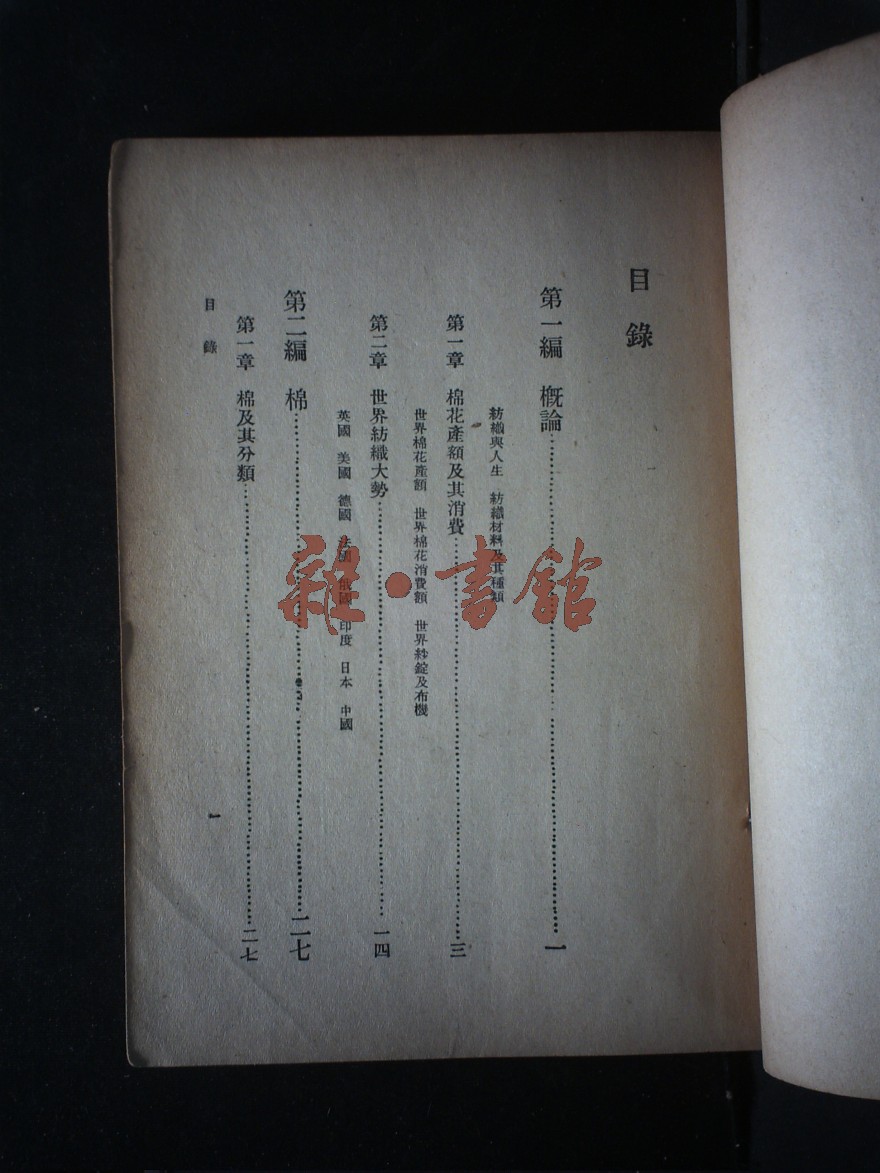 目錄
第一編 概論……一
紡織與人生 紡織材料及其種類
第一章 棉花產額及其消費……三
世界棉花產額 世界棉花消費額 世界紗錠及布機
第二章 世界紡織大勢……一四
英國 美國 德國 法國 俄國 印度 日本 中國
第二編 棉……二七
第一章 棉及其分類……二七
目錄
一
雜·書館